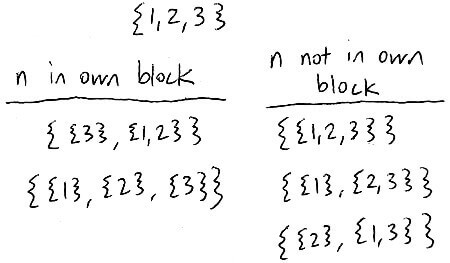 {1,2,3}
n in own block
{ {3}, {1,2} }
{ {1}, {2}, {3} }
n not in own
block
{ {1,2,3} }
{ {1}, {2,3} }
{ {2}, {1,3} }